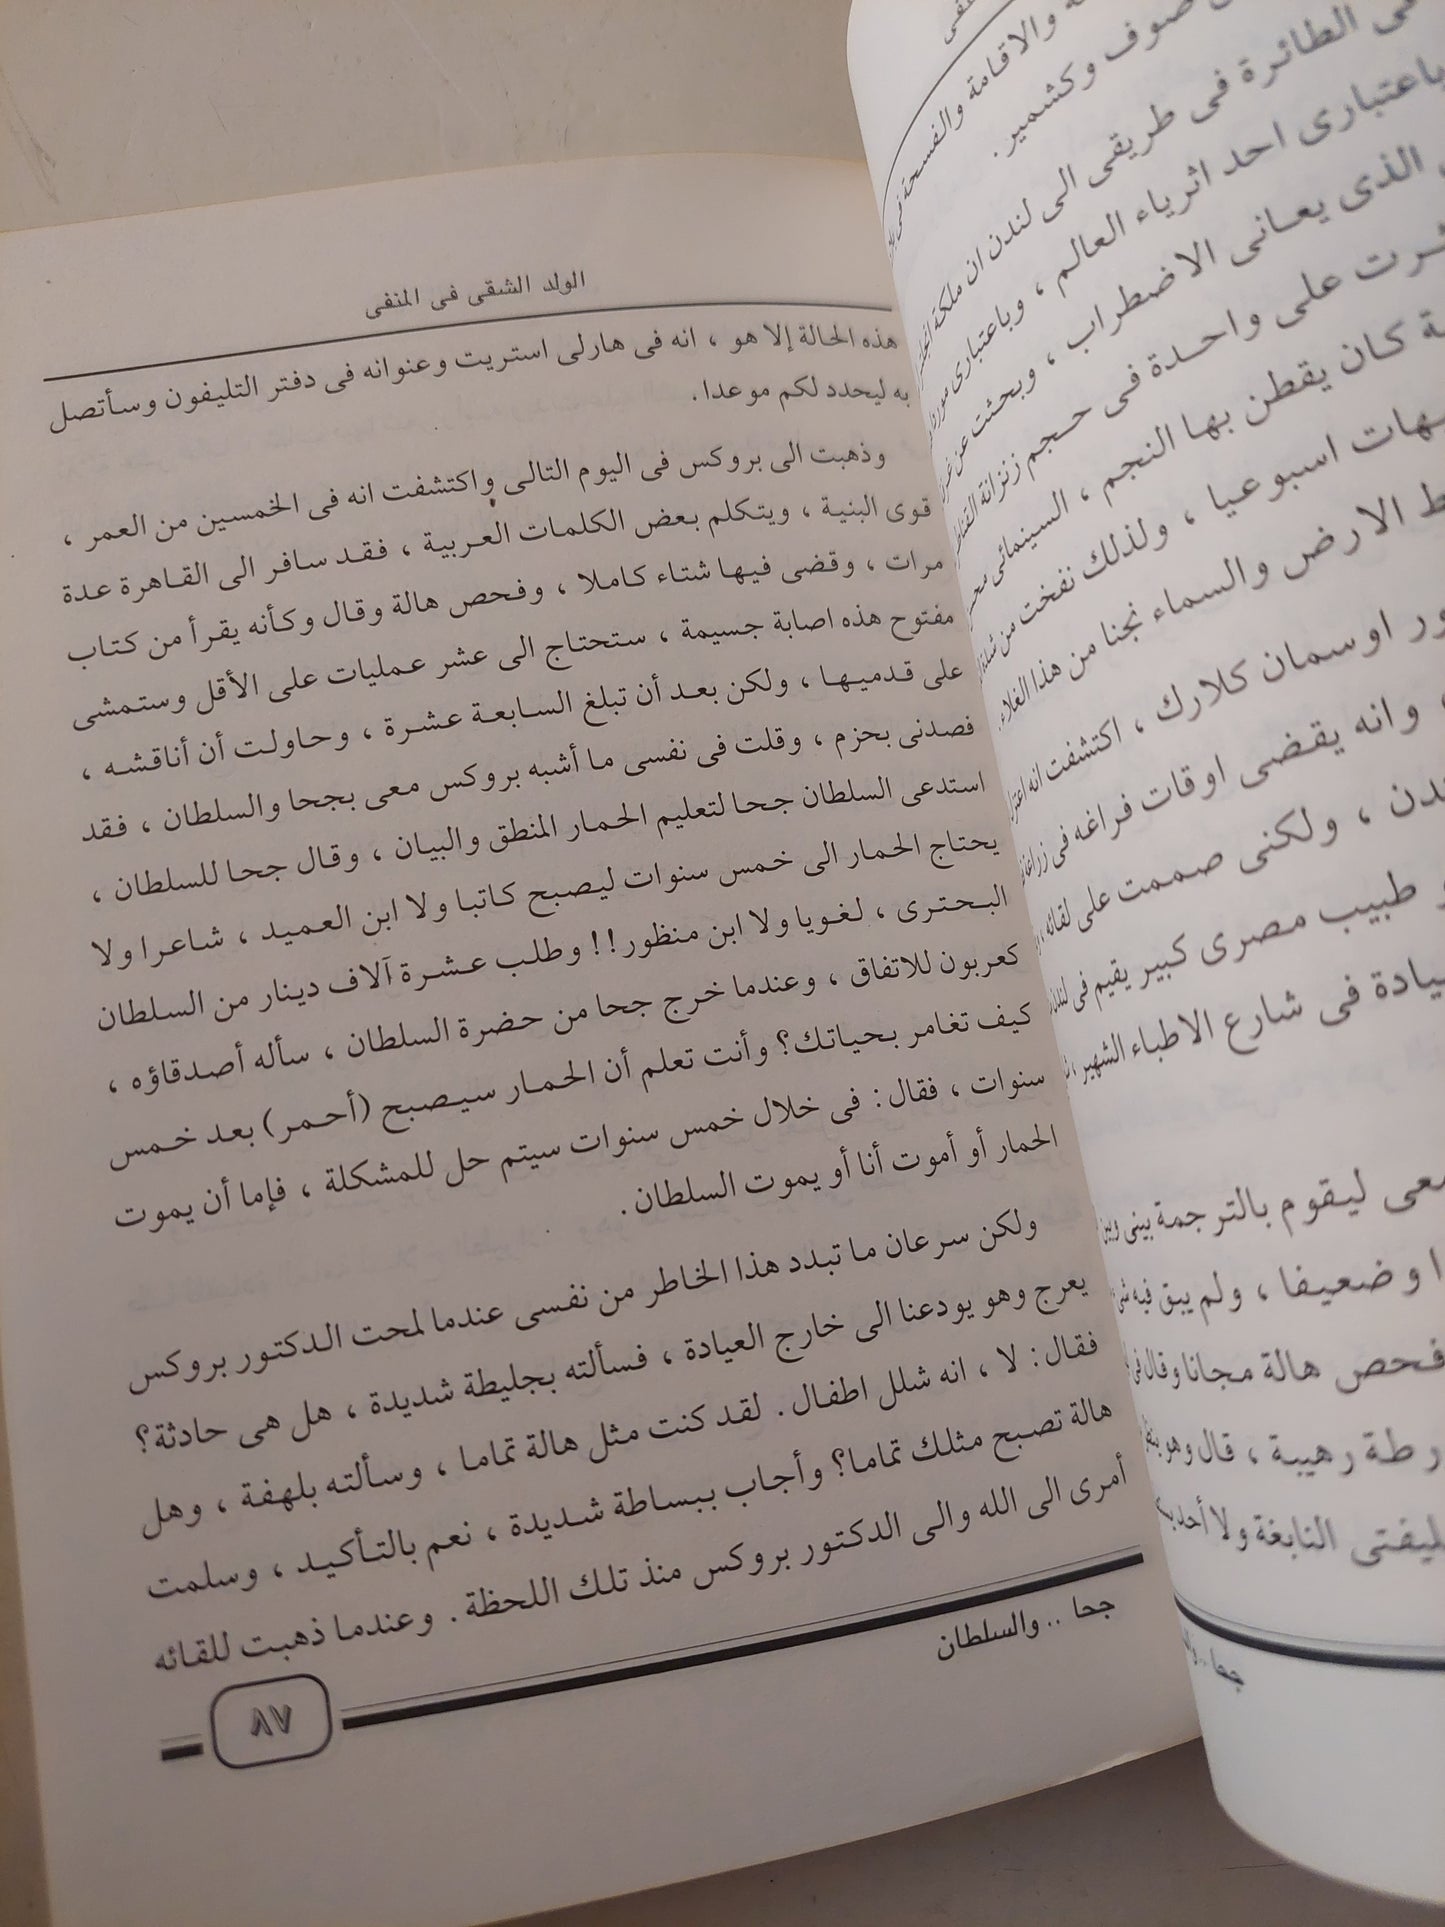 الولد الشقى فى المنفى
هذه الحالة إلا هو ، انه فى هارلى استريت وعنوانه فى دفتر التليفون وسأتصل
به ليحدد لكم موعدا .
وذهبت الى بروكس فى اليوم التالى واكتشفت انه فى الخمسين من العمر ،
قوى البنية ، ويتكلم بعض الكلمات العربية ، فقد سافر الى القاهرة عدة
مرات ، وقضى فيها شتاء كاملا ، وفحص هالة وقال وكأنه يقرأ من كتاب
مفتوح هذه اصابة جسيمة ، ستحتاج الى عشر عمليات على الأقل وستمشى
على قدميها ، ولكن بعد أن تبلغ السابعة عشرة ، وحاولت أن أناقشه ،
فصدنى بحزم ، وقلت فى نفسى ما أشبه بروكس معى بجحا والسلطان ، فقد
استدعى السلطان جحا لتعليم الحمار المنطق والبيان ، وقال جحا للسلطان ،
يحتاج الحمار الى خمس سنوات ليصبح كاتبا ولا ابن العميد ، شاعرا ولا
البحترى ، لغويا ولا ابن منظور!! وطلب عشرة آلاف دينار من السلطان
كعربون للاتفاق ، وعندما خرج جحا من حضرة السلطان ، سأله أصدقاؤه ،
كيف تغامر بحياتك؟ وأنت تعلم أن الحمار سيصبح (أحمر) بعد خمس
سنوات ، فقال: فى خلال خمس سنوات سيتم حل للمشكلة ، فإما أن يموت
الحمار أو أموت أنا أو يموت السلطان.
ولكن سرعان ما تبدد هذا الخاطر من نفسى عندما لمحت الدكتور بروكس
يعرج وهو يودعنا الى خارج العيادة ، فسألته بجليطة شديدة ، هل هى حادثة؟
فقال: لا ، انه شلل اطفال. لقد كنت مثل هالة تماما ، وسألته بلهفة ، وهل
هالة تصبح مثلك تماما؟ وأجاب ببساطة شديدة ، نعم بالتأكيد ، وسلمت
أمرى الى الله والى الدكتور بروكس منذ تلك اللحظة. وعندما ذهبت للقائه
جحا .. والسلطان
٨٧
والاقامة والفسحة فى
صوف وكشمير.
فى الطائرة فى طريقى الى لندن ان ملكة
باعتبارى احد اثرياء العالم ، وباعتبارى
الذى يعانى الاضطراب ، وبحثت عن
على واحدة فى حجم زنزانة
كان يقطن بها النجم ، السينمائى
اسبوعيا ، ولذلك نفخت من
الارض والسماء نجنا من هذا الغلاء.
اوسمان كلارك ، اكتشفت انه
، وانه يقضى اوقات فراغه فى
، ولكنى صممت على لقائه
طبيب مصرى كبير يقيم فى
فى شارع الاطباء الشهير ،
معى ليقوم بالترجمة بينى وبين
وضعيفا ، ولم يبق فيه
هالة مجانا وقال فى
رهيبة ، قال وهو
النابغة ولا أحد
جحا ..